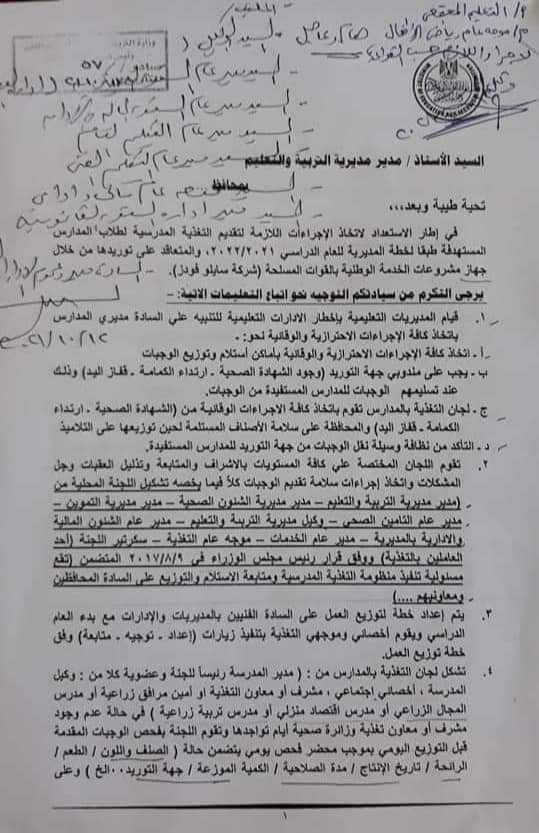 السيد الأستاذ / مدير مديرية التربية والتعليم
بمحافظ
تحية طيبة وبعد،،،
في إطار الاستعداد لاتخاذ الإجراءات اللازمة لتقديم التغذية المدرسية لطلاب المدارس
المستهدفة طبقا لخطة المديرية للعام الدراسي ٢٠٢٢/٢٠٢١، والمتعاقد علي توريدها من خلال
جهاز مشروعات الخدمة الوطنية بالقوات المسلحة (شركة سايلو فودز).
يرجى التكرم من سيادتكم التوجيه نحو اتباع التعليمات الاتية:-
١. قيام المديريات التعليمية بإخطار الادارات التعليمية للتنبيه علي السادة مديري المدارس
باتخاذ كافة الإجراءات الاحترازية والوقائية نحو:-
أ- اتخاذ كافة الإجراءات الاحترازية والوقائية بأماكن أستلام وتوزيع الوجبات
ب- يجب على مندوبي جهة التوريد (وجود الشهادة الصحية - ارتداء الكمامة - قفاز اليد) وذلك
عند تسليمهم الوجبات للمدارس المستفيدة من الوجبات.
ج- لجان التغذية بالمدارس تقوم باتخاذ كافة الاجراءات الوقائية من (الشهادة الصحية - ارتداء
الكمامة - قفاز اليد) والمحافظة على سلامة الأصناف المستلمة لحين توزيعها على التلاميذ
د- التأكد من نظافة وسيلة نقل الوجبات من جهة التوريد للمدارس المستفيدة.
٢. تقوم اللجان المختصة علي كافة المستويات بالاشراف والمتابعة وتذليل العقبات وحل
المشكلات واتخاذ إجراءات سلامة تقديم الوجبات كلاً فيما يخصه تشكيل اللجنة المحلية من
(مدير مديرية التربية والتعليم - مدير مديرية الشئون الصحية - مدير مديرية التموين -
مدير عام التامين الصحي - وكيل مديرية التربية والتعليم - مدير عام الشئون المالية
والادارية بالمديرية - مدير عام الخدمات - موجه عام التغذية - سكرتير اللجنة (أحد
العاملين بالتغذية) ووفق قرار رئيس مجلس الوزراء في ٢٠١٧/٨/٩ المتضمن (تقع
مسئولية تنفيذ منظومة التغذية المدرسية ومتابعة الاستلام والتوزيع علي السادة المحافظين
ومعاونيهم ....)
٣. يتم إعداد خطة لتوزيع العمل على السادة الفنيين بالمديريات والإدارات مع بدء العام
الدراسي ويقوم أخصائي وموجهي التغذية بتنفيذ زيارات (إعداد - توجيه - متابعة) وفق
خطة توزيع العمل.
٤. تشكل لجان التغذية بالمدارس من : ( مدير المدرسة رئيساً للجنة وعضوية كلا من : وكيل
المدرسة ، أخصائي إجتماعي ، مشرف أو معاون التغذية او امين مرافق زراعية أو مدرس
المجال الزراعي أو مدرس اقتصاد منزلي أو مدرس تربية زراعية ) في حالة عدم وجود
مشرف أو معاون تغذية وزائرة صحية أيام تواجدها وتقوم اللجنة بفحص الوجبات المقدمة
قبل التوزيع اليومي بموجب محضر فحص يومي يتضمن حالة ( الصنف واللون / الطعم /
الرائحة / تاريخ الإنتاج / مدة الصلاحية / الكمية الموزعة / جهة التوريد...الخ ) وعلى
١